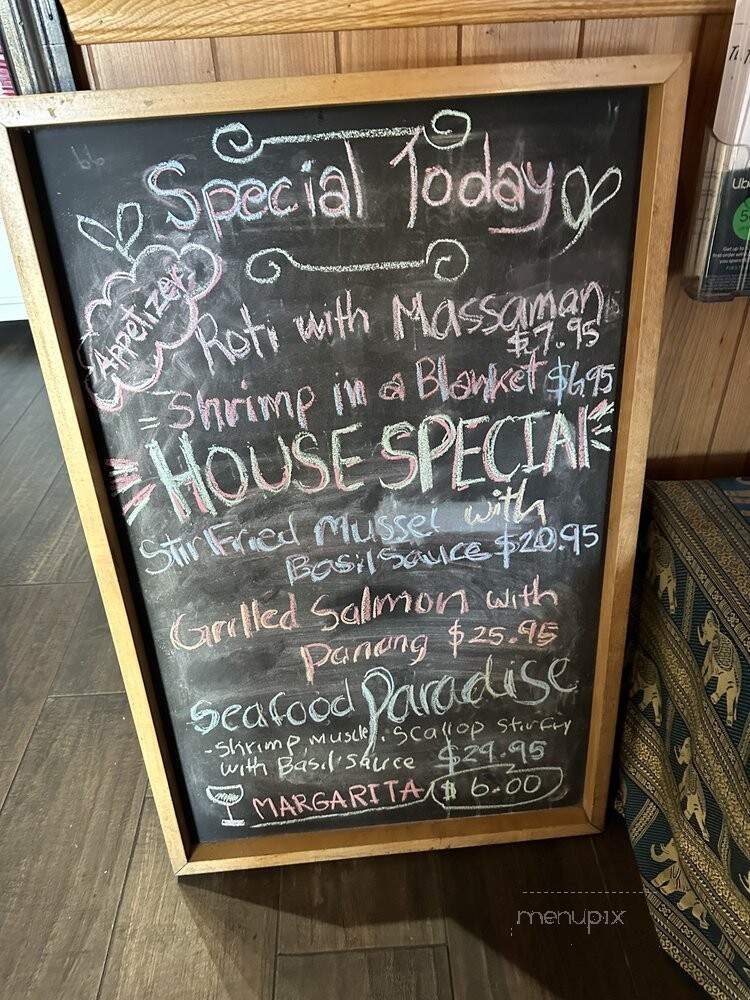 Special Today
Appetizer
Roti with Massaman
$7.95
Shrimp in a Blanket $6.95
HOUSE SPECIAL
Stir Fried Mussel with
Basil Sauce $20.95
Grilled Salmon with
Panang $25.95
Seafood Paradise
- Shrimp, Muscle, Scallop Stir fry
with Basil Sauce $29.95
MARGARITA $6.00
menupix